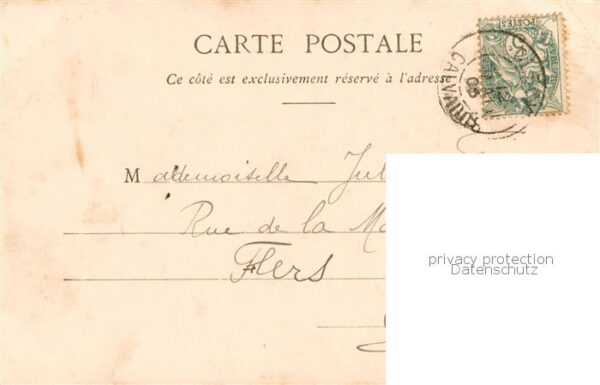 CARTE POSTALE
Ce côté est exclusivement réservé à l'adresse
POSTES
CALVADOS
Mademoiselle Jul
Rue de la Ma
Flers
privacy protection
Datenschutz